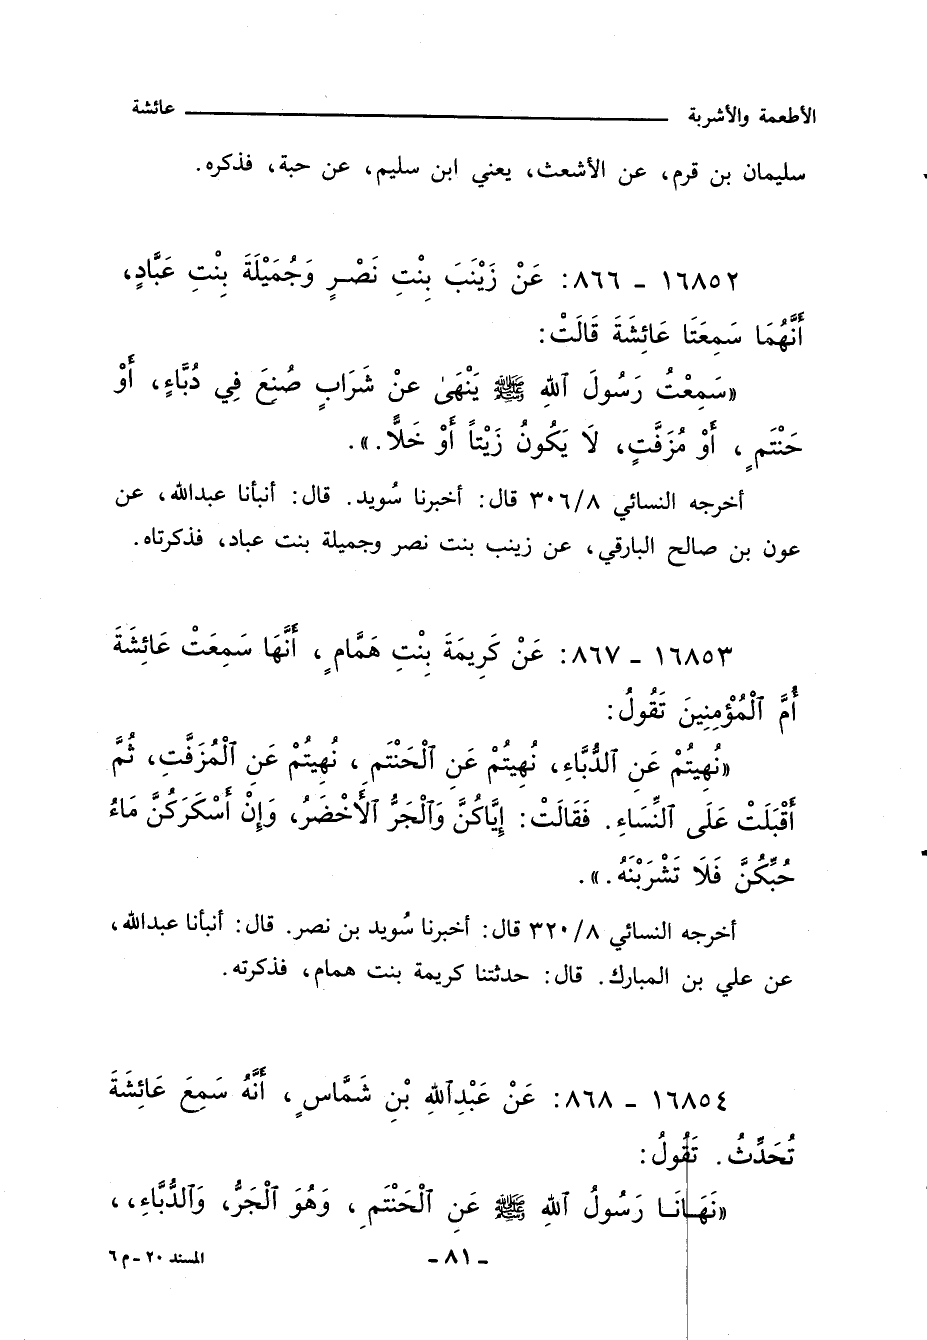 الأطعمة والأشربة ــــــــــــ عائشة
سليمان بن قرم، عن الأشعث، يعني ابن سليم، عن حبة، فذكره.
١٦٨٥٢ - ٨٦٦: عَنْ زَيْنَبَ بِنْتِ نَصْرٍ وَجُمَيْلَةَ بِنْتِ عَبَّادٍ،
أَنَّهُمَا سَمِعَتَا عَائِشَةَ قَالَتْ:
«سَمِعْتُ رَسُولَ ٱللهِ ﷺ يَنْهَىٰ عنْ شَرَابٍ صُنعَ فِي دُبَّاءٍ، أَوْ
حَنْتَمٍ، أَوْ مُزَفَّتٍ، لَا يَكُونُ زَيْتاً أَوْ خَلًّا.».
أخرجه النسائي ٣٠٦/٨ قال: أخبرنا سُويد. قال: أنبأنا عبدالله، عن
عون بن صالح البارقي، عن زينب بنت نصر وجميلة بنت عباد، فذكرتاه.
١٦٨٥٣ - ٨٦٧: عَنْ كَرِيمَةَ بِنْتِ هَمَّامٍ، أَنَّهَا سَمِعَتْ عَائِشَةَ
أُمَّ ٱلْمُؤْمِنِينَ تَقُولُ:
«نُهِيتُمْ عَنِ ٱلدُّبَّاءِ، نُهِيتُمْ عَنِ ٱلْحَنْتَمِ، نُهِيتُمْ عَنِ ٱلْمُزَفَّتِ، ثُمَّ
أَقْبَلَتْ عَلَى ٱلنِّسَاءِ. فَقَالَتْ: إِيَّاكُنَّ وَٱلْجَرَّ ٱلأَخْضَرُ، وَإِنْ أَسْكَرَكُنَّ مَاءُ
حُبِّكُنَّ فَلَا تَشْرَبْنَهُ.».
أخرجه النسائي ٣٢٠/٨ قال: أخبرنا سُويد بن نصر. قال: أنبأنا عبدالله،
عن علي بن المبارك. قال: حدثتنا كريمة بنت همام، فذكرته.
١٦٨٥٤ - ٨٦٨: عَنْ عَبْدِٱللهِ بْنِ شَمَّاسٍ، أَنَّهُ سَمِعَ عَائِشَةَ
تُحَدِّثُ. تَقُولُ:
«نَهَانَا رَسُولُ ٱللهِ ﷺ عَنِ ٱلْحَنْتَمِ، وَهُوَ ٱلْجَرُّ، وَٱلدُّبَّاءِ،،
- ٨١ -
المسند ٢٠ - م ٦